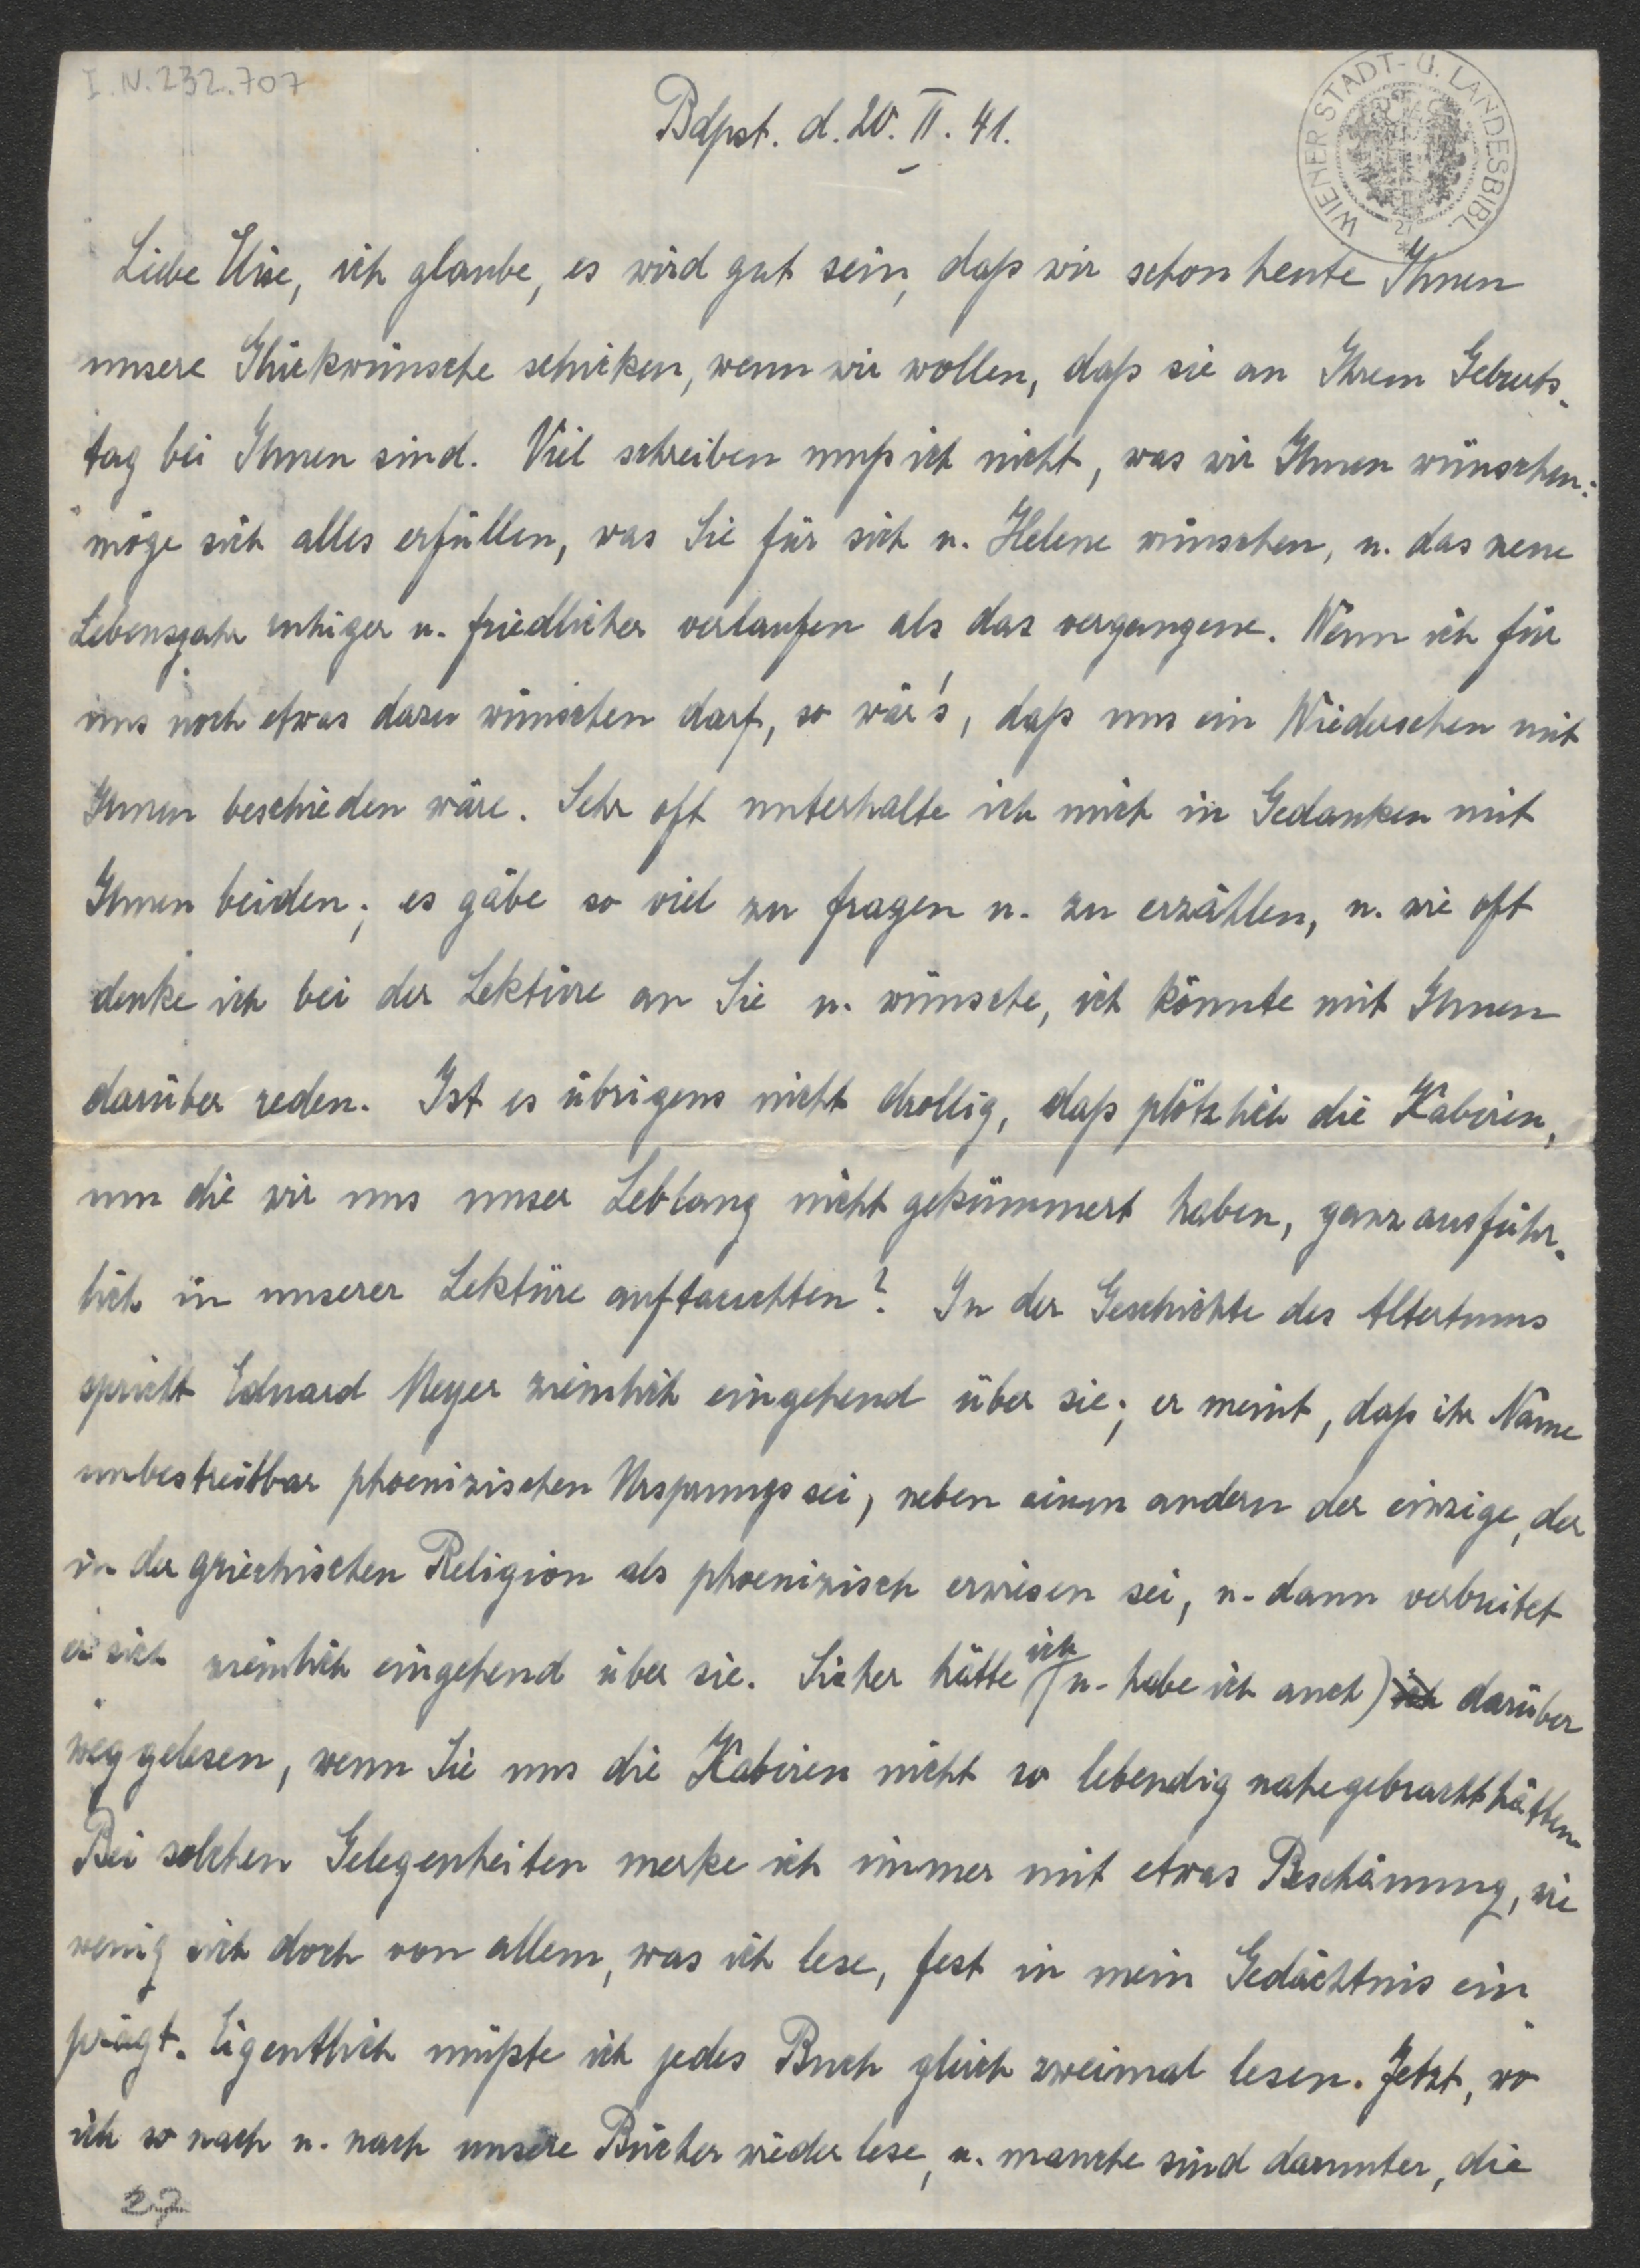 I.N.232.707
WIENER STADT- U. LANDESBIBL.
27
Bdpst. d. 20. II. 41.
Liebe Elise, ich glaube, es wird gut sein, daß wir schon heute Ihnen
unsere Glückwünsche schicken, wenn wir wollen, daß sie an Ihrem Geburts-
tag bei Ihnen sind. Viel schreiben muß ich nicht, was wir Ihnen wünschen:
möge sich alles erfüllen, was Sie für sich u. Helene wünschen, u. das neue
Lebensjahr ruhiger u. friedlicher verlaufen als das vergangene. Wenn ich für
uns noch etwas dazu wünschen darf, so wär's, daß uns ein Wiedersehen mit
Ihnen beschieden wäre. Sehr oft unterhalte ich mich in Gedanken mit
Ihnen beiden; es gäbe so viel zu fragen u. zu erzählen, u. wie oft
denke ich bei der Lektüre an Sie u. wünschte, ich könnte mit Ihnen
darüber reden. Ist es übrigens nicht drollig, daß plötzlich die Kabiren,
um die wir uns unser Leblang nicht gekümmert haben, ganz ausführ-
lich in unserer Lektüre auftauchten? In der Geschichte des Altertums
spricht Eduard Meyer ziemlich eingehend über sie; er meint, daß ihr Name
unbestreitbar phoenizischen Ursprungs sei, neben einem andern der einzige, der
in der griechischen Religion als phoenizisch erwiesen sei, u. dann verbreitet
er sich ziemlich eingehend über sie. Sicher hätte ich (u. habe ich auch) ich darüber
weggelesen, wenn Sie uns die Kabiren nicht so lebendig nahegebracht hätten
Bei solchen Gelegenheiten merke ich immer mit etwas Beschämung, wie
wenig sich doch von allem, was ich lese, fest in mein Gedächtnis ein
prägt. Eigentlich müßte ich jedes Buch gleich zweimal lesen. Jetzt, wo
ich so nach u. nach unsere Bücher wieder lese, u. manche sind darunter, die